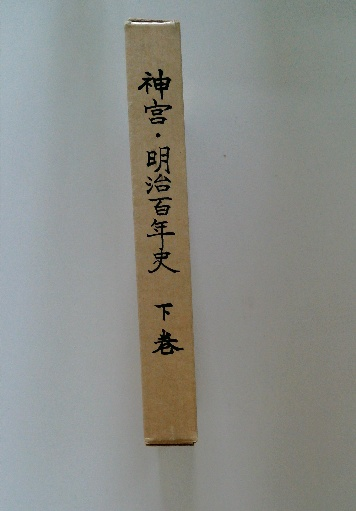 神宮・明治百年史 下巻